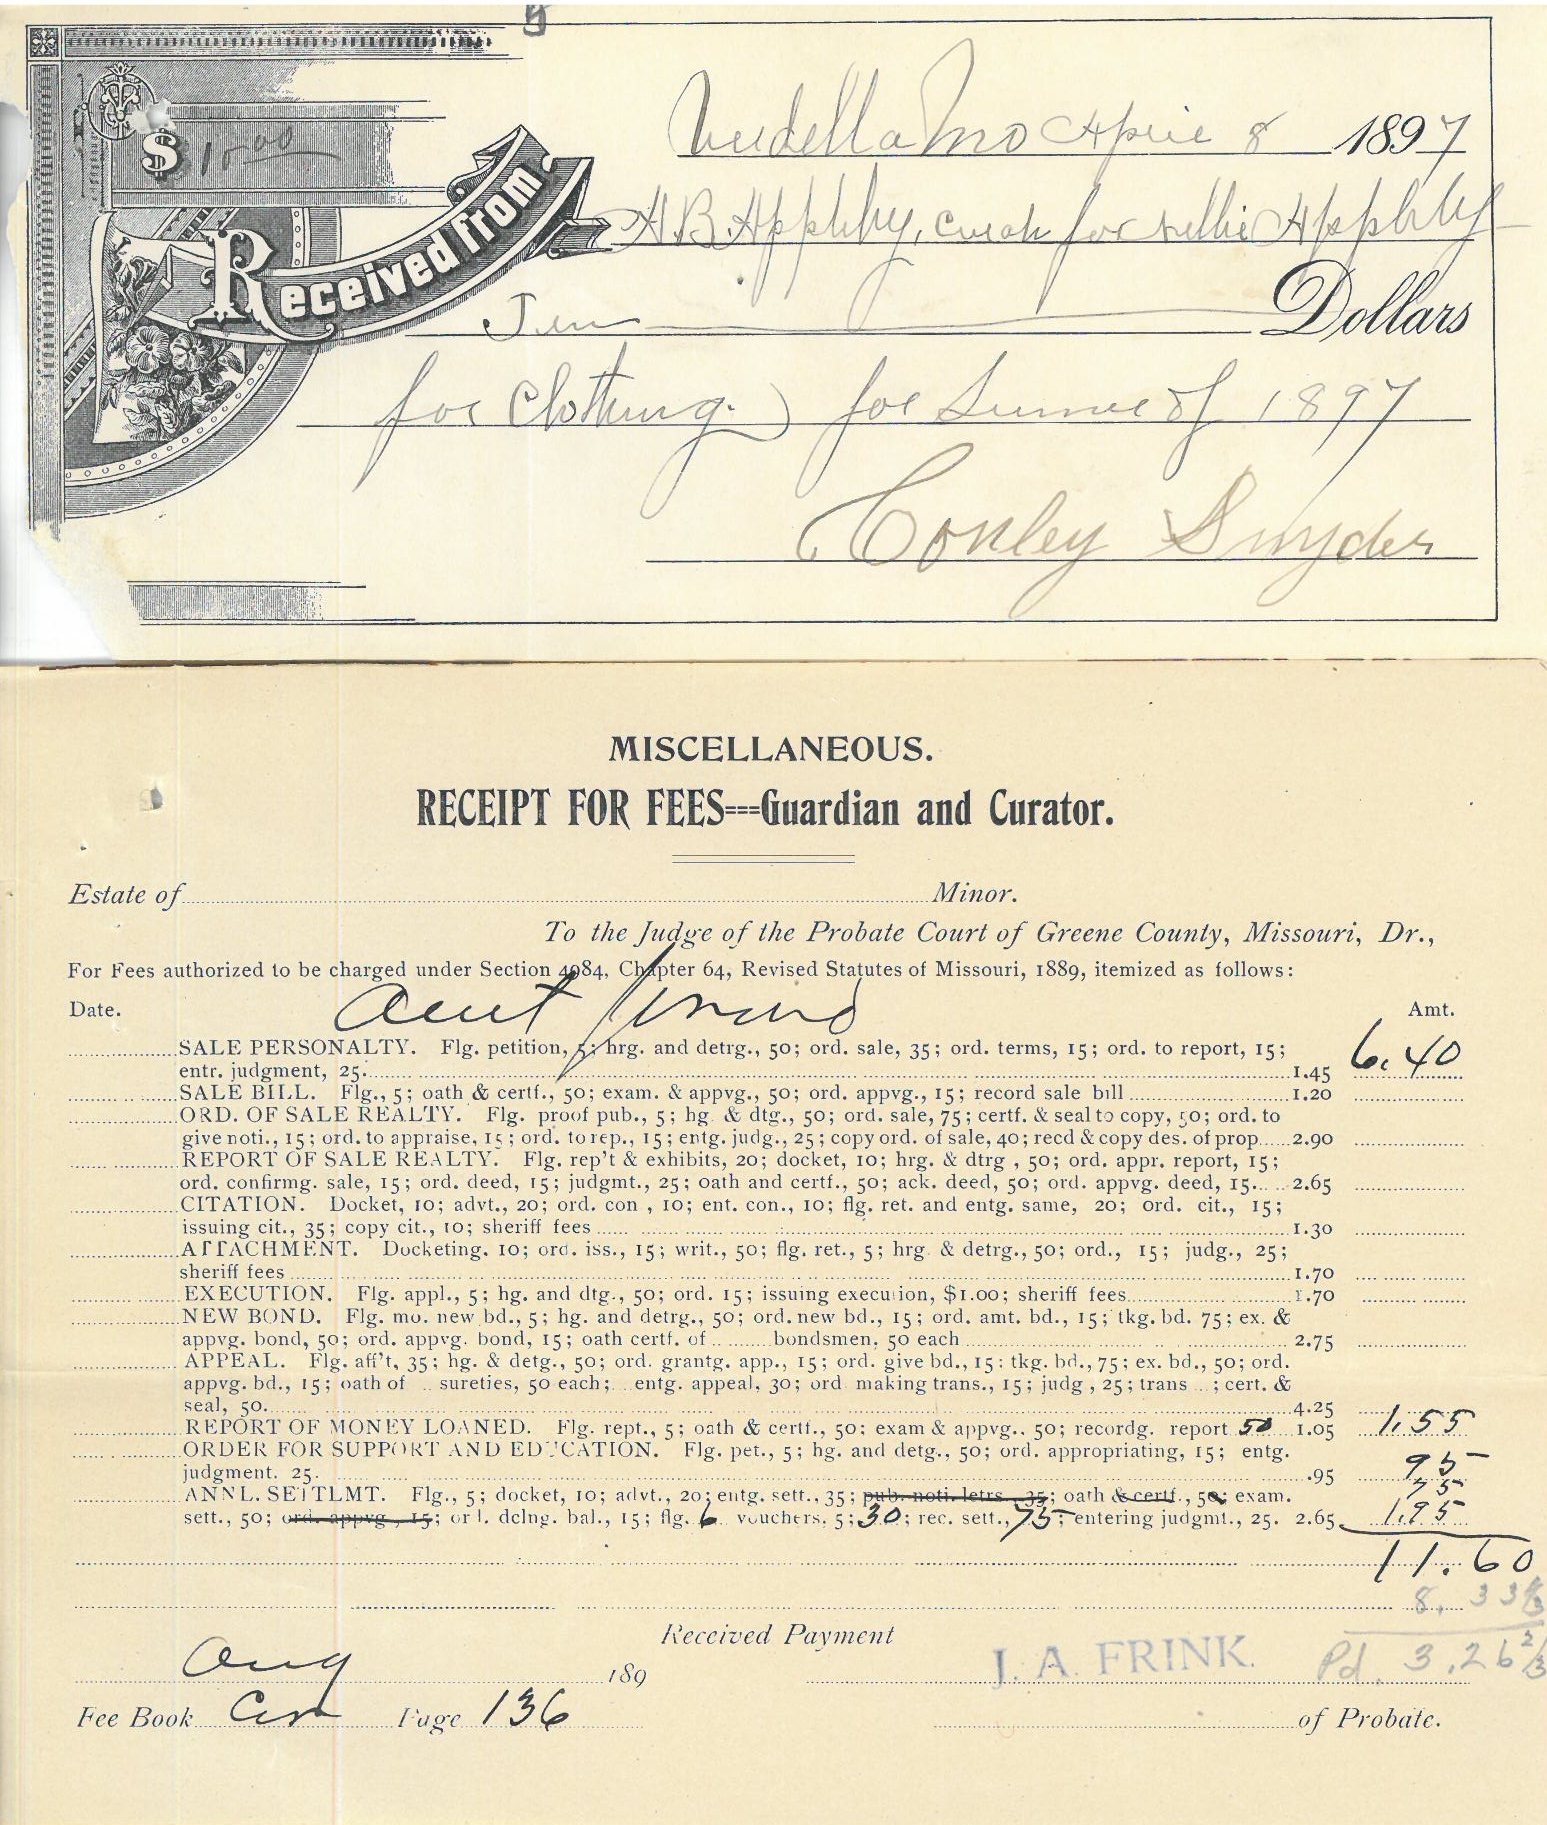 $ 10.00
Mo April 8 1897
Received from A. B. Appleby, curat for Nellie Appleby
Ten Dollars
for Clothing for Summer of 1897
Conley Snyder
MISCELLANEOUS.
RECEIPT FOR FEES===Guardian and Curator.
Estate of Minor.
To the Judge of the Probate Court of Greene County, Missouri, Dr.,
For Fees authorized to be charged under Section 4984, Chapter 64, Revised Statutes of Missouri, 1889, itemized as follows:
Date. Amt.
SALE PERSONALTY. Flg. petition, 5; hrg. and detrg., 50; ord. sale, 35; ord. terms, 15; ord. to report, 15; 6.40
entr. judgment, 25. 1.45
SALE BILL. Flg., 5; oath & certf., 50; exam. & appvg., 50; ord. appvg., 15; record sale bill 1.20
ORD. OF SALE REALTY. Flg. proof pub., 5; hg. & dtg., 50; ord. sale, 75; certf. & seal to copy, 50; ord. to
give noti., 15; ord. to appraise, 15; ord. to rep., 15; entg. judg., 25; copy ord. of sale, 40; recd & copy des. of prop. 2.90
REPORT OF SALE REALTY. Flg. rep't & exhibits, 20; docket, 10; hrg. & dtrg, 50; ord. appr. report, 15;
ord. confirmg. sale, 15; ord. deed, 15; judgmt., 25; oath and certf., 50; ack. deed, 50; ord. appvg. deed, 15. 2.65
CITATION. Docket, 10; advt., 20; ord. con, 10; ent. con., 10; flg. ret. and entg. same, 20; ord. cit., 15;
issuing cit., 35; copy cit., 10; sheriff fees 1.30
ATTACHMENT. Docketing, 10; ord. iss., 15; writ., 50; flg. ret., 5; hrg. & detrg., 50; ord., 15; judg., 25;
sheriff fees 1.70
EXECUTION. Flg. appl., 5; hg. and dtg., 50; ord. 15; issuing execuion, $1.00; sheriff fees 1.70
NEW BOND. Flg. mo. new bd., 5; hg. and detrg., 50; ord. new bd., 15; ord. amt. bd., 15; tkg. bd. 75; ex. &
appvg. bond, 50; ord. appvg. bond, 15; oath certf. of bondsmen, 50 each 2.75
APPEAL. Flg. aff't, 35; hg. & detg., 50; ord. grantg. app., 15; ord. give bd., 15; tkg. bd., 75; ex. bd., 50; ord.
appvg. bd., 15; oath of sureties, 50 each; entg. appeal, 30; ord making trans., 15; judg, 25; trans ; cert. &
seal, 50. 4.25
REPORT OF MONEY LOANED. Flg. rept., 5; oath & certf., 50; exam & appvg., 50; recordg. report 50 1.05 1.55
ORDER FOR SUPPORT AND EDUCATION. Flg. pet., 5; hg. and detg., 50; ord. appropriating, 15; entg.
judgment. 25. .95 95
ANNL. SETTLMT. Flg., 5; docket, 10; advt., 20; entg. sett., 35; pub. noti. letrs., 35; oath & certf., 50; exam. 75
sett., 50; ord. appvg., 15; ord. dclng. bal., 15; flg. 6 vouchers, 5; 30; rec. sett., 75; entering judgmt., 25. 2.65 1.95
11.60
8.33 1/3
Received Payment
Aug 189 J. A. FRINK. Pd. 3.26 2/3
Fee Book Page 136 of Probate.